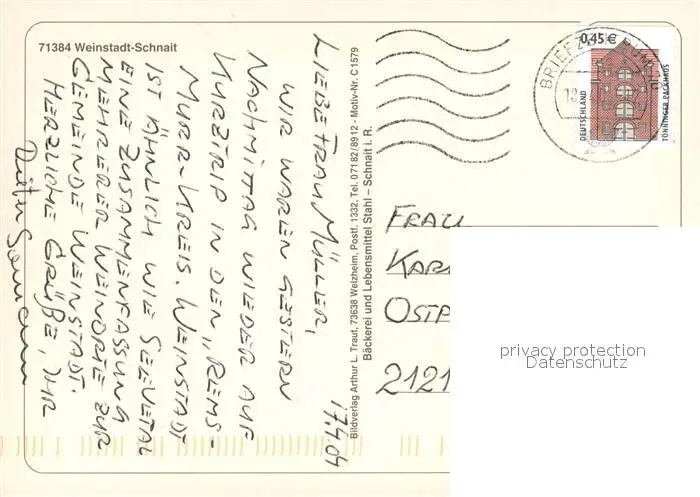 71384 Weinstadt-Schnait
17.4.04
LIEBE FRAU MÜLLER,
WIR WAREN GESTERN
NACHMITTAG WIEDER AUF
KURZTRIP IN DEN "REMS-
MURR-KREIS. WEINSTADT
IST ÄHNLICH WIE SEEVETAL
EINE ZUSAMMENFASSUNG
MEHRERER WEINORTE ZUR
GEMEINDE WEINSTADT.
HERZLICHE GRÜßE, IHR
Bildverlag Arthur L. Traut, 73638 Welzheim, Postf. 1332, Tel. 07182/8912 - Motiv-Nr. C1579
Bäckerei und Lebensmittel Stahl – Schnait i. R.
BRIEFZENTRUM
0,45 €
DEUTSCHLAND
TÖNNINGER PACKHAUS
FRAU
KAR
OSTP
2121
privacy protection
Datenschutz